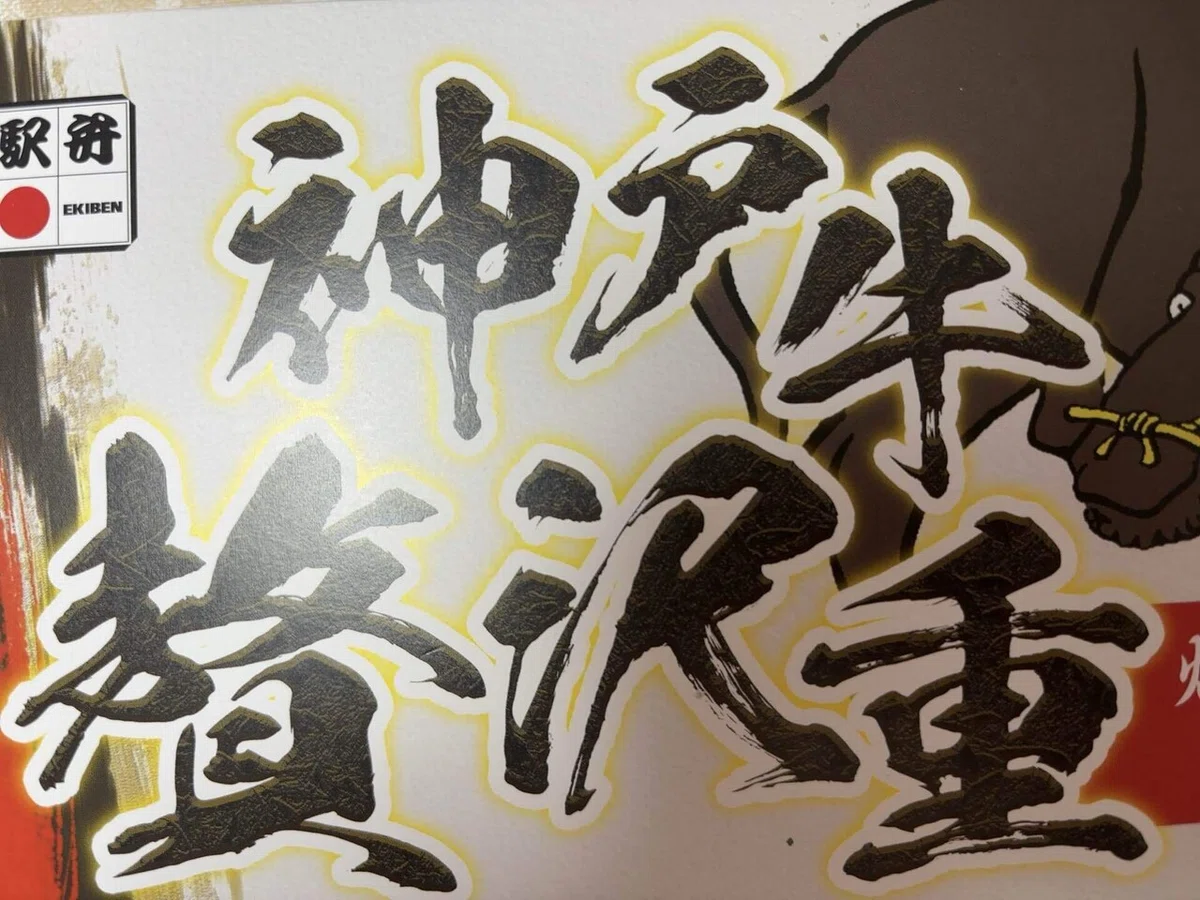 駅弁
EKIBEN
神戸牛
贅沢重